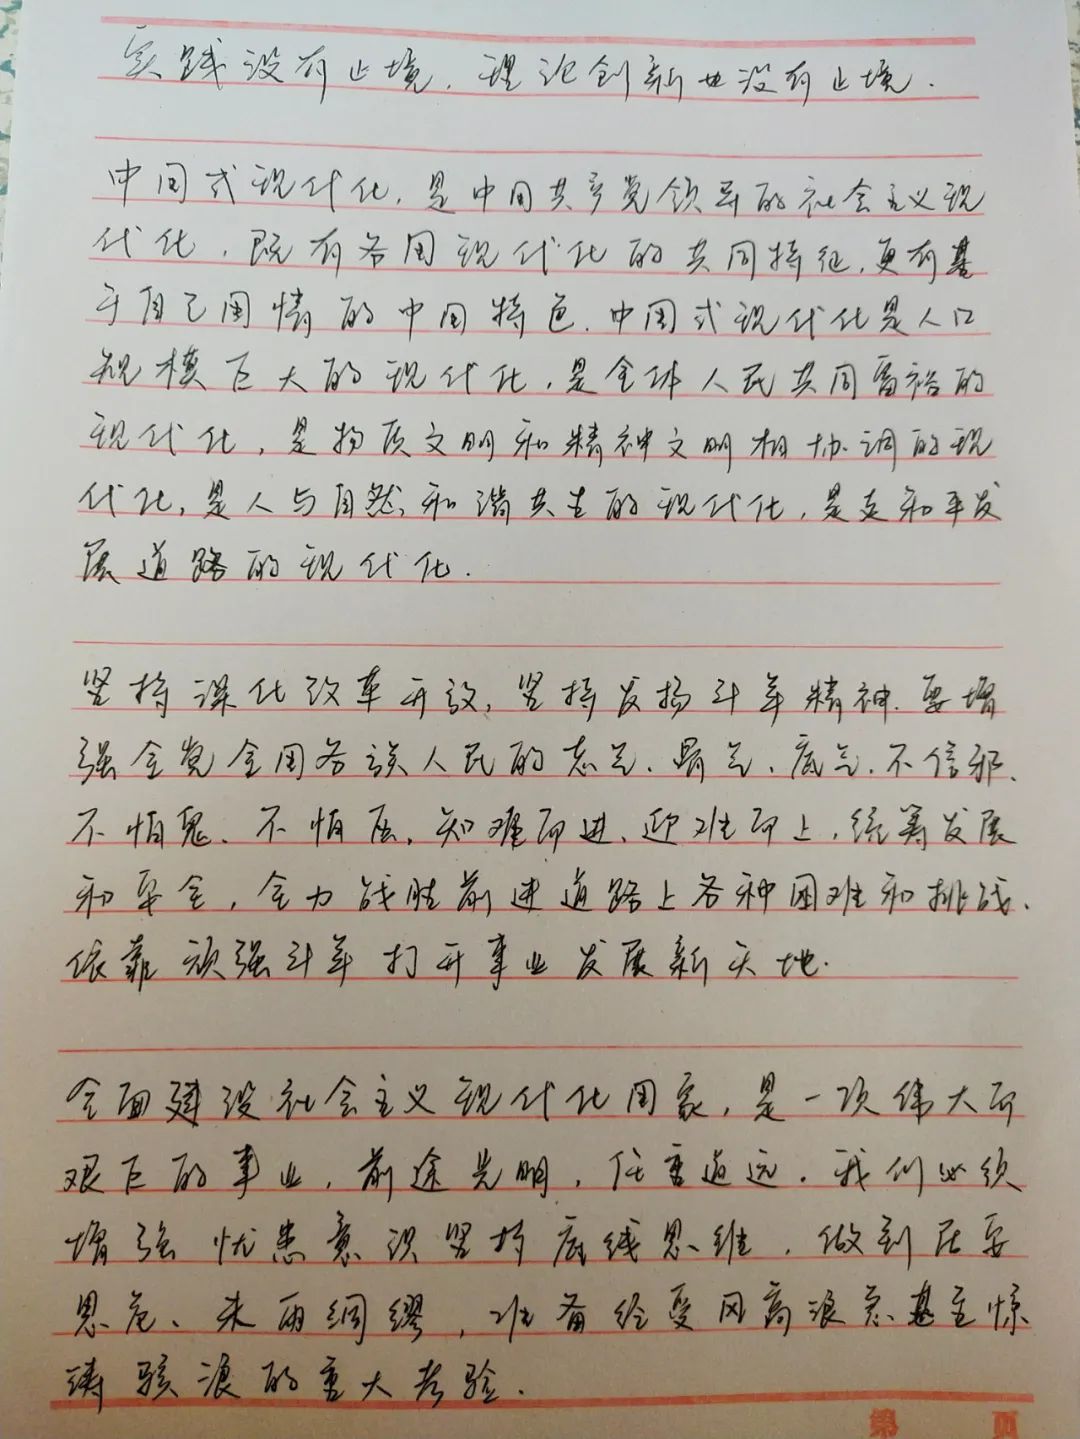 实践没有止境，理论创新也没有止境．
中国式现代化，是中国共产党领导的社会主义现
代化，既有各国现代化的共同特征，更有基
于自己国情的中国特色．中国式现代化是人口
规模巨大的现代化，是全体人民共同富裕的
现代化，是物质文明和精神文明相协调的现
代化，是人与自然和谐共生的现代化，是走和平发
展道路的现代化．
坚持深化改革开放，坚持发扬斗争精神．要增
强全党全国各族人民的志气、骨气、底气，不信邪、
不怕鬼、不怕压，知难而进、迎难而上，统筹发展
和安全，全力战胜前进道路上各种困难和挑战，
依靠顽强斗争打开事业发展新天地．
全面建设社会主义现代化国家，是一项伟大而
艰巨的事业，前途光明，任重道远．我们必须
增强忧患意识坚持底线思维，做到居安
思危、未雨绸缪，准备经受风高浪急甚至惊
涛骇浪的重大考验．
第 页